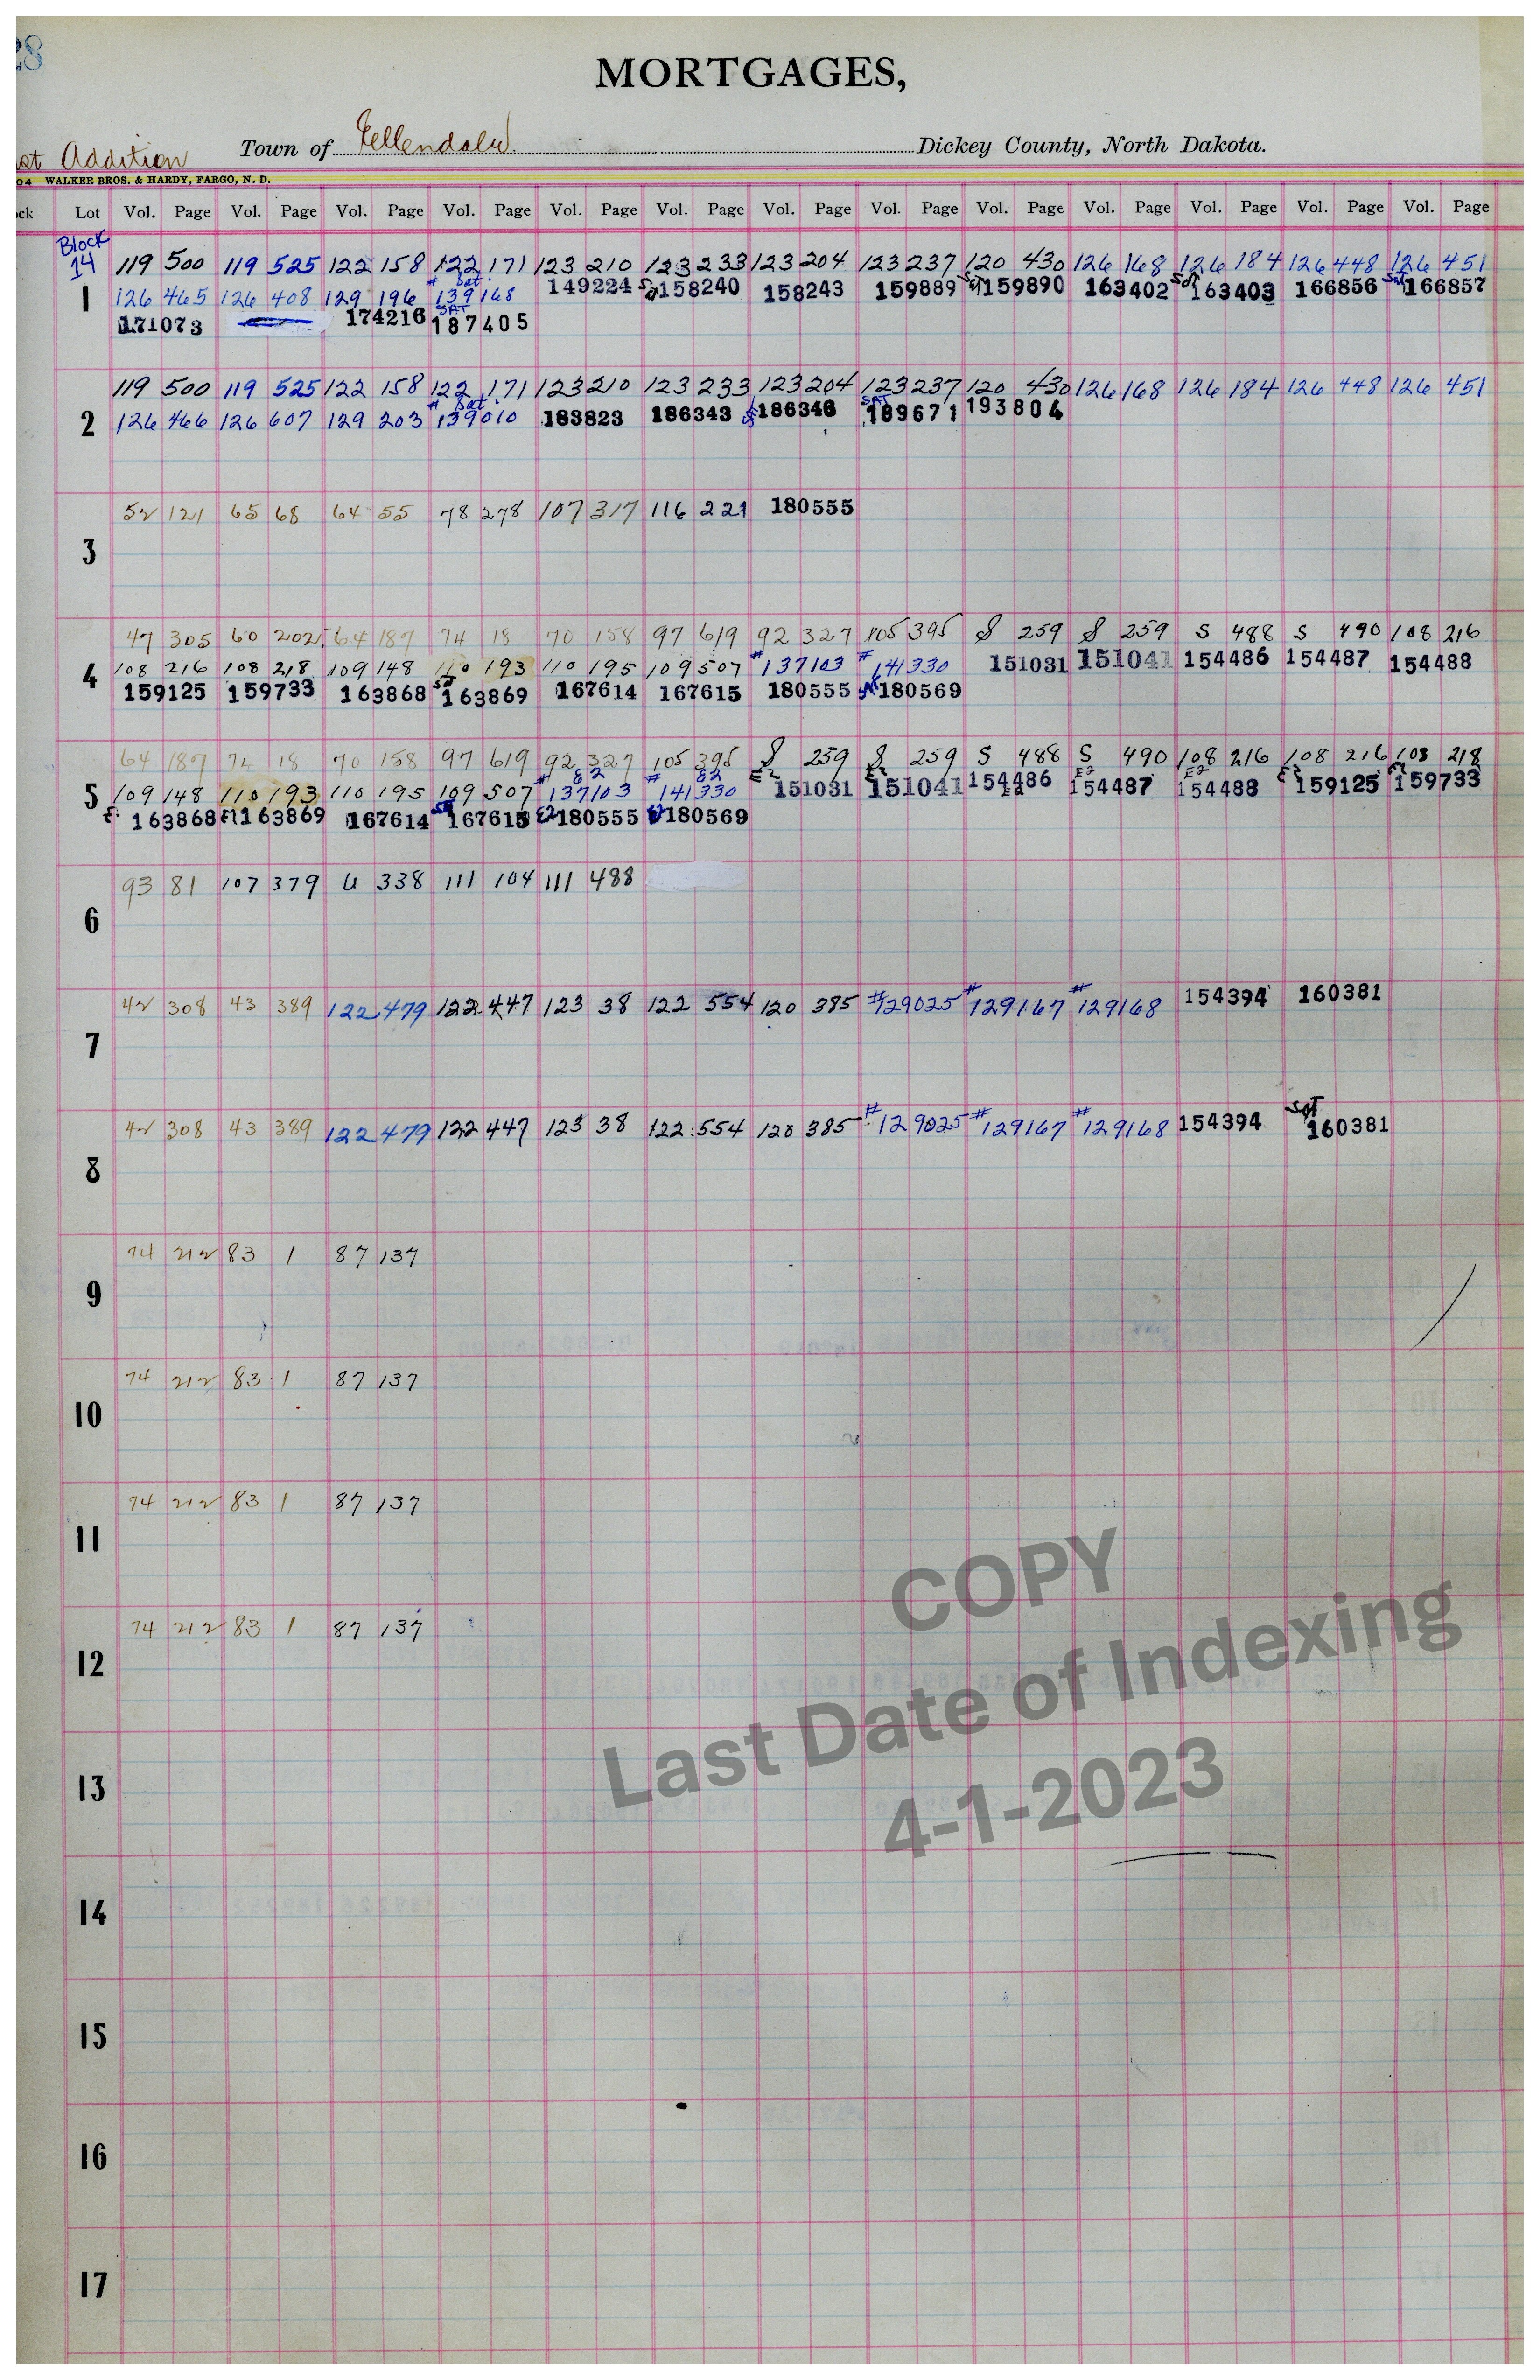 28
MORTGAGES,
st Addition Town of Ellendale Dickey County, North Dakota.
04 WALKER BROS. & HARDY, FARGO, N. D.
ck Lot Vol. Page Vol. Page Vol. Page Vol. Page Vol. Page Vol. Page Vol. Page Vol. Page Vol. Page Vol. Page Vol. Page Vol. Page Vol. Page
Block
14 119 500 119 525 122 158 122 171 123 210 123 233 123 204 123 237 120 430 126 168 126 184 126 448 126 451
# Sat.
1 126 465 126 408 129 196 139168 149224 Sat 158240 158243 159889 Sat 159890 163402 Sat 163403 166856 Sat 166857
SAT
171073 174216 187405
119 500 119 525 122 158 122 171 123 210 123 233 123 204 123 237 120 430 126 168 126 184 126 448 126 451
# Sat. SAT
2 126 466 126 607 129 203 139010 183823 186343 186346 189671 193804
52 121 65 68 64 55 78 278 107 317 116 221 180555
3
47 305 60 202 64 187 74 18 70 158 97 619 92 327 105 395 S 259 S 259 S 488 S 490 108 216
4 108 216 108 218 109 148 110 193 110 195 109 507 #137103 #141330 151031 151041 154486 154487 154488
159125 159733 163868 163869 167614 167615 180555 180569
64 187 74 18 70 158 97 619 92 327 105 395 S 259 S 259 S 488 S 490 108 216 108 216 108 218
E2 E2 E2 E2 E2 E2 E2
5 109 148 110 193 110 195 109 507 #137103 #141330 151031 151041 154486 154487 154488 159125 159733
163868 163869 167614 167615 E2 180555 180569
93 81 107 379 U 338 111 104 111 488
6
42 308 43 389 122 479 122 447 123 38 122 554 120 385 #129025 #129167 #129168 154394 160381
7
42 308 43 389 122 479 122 447 123 38 122 554 120 385 #129025 #129167 #129168 154394 Sat 160381
8
74 212 83 1 87 137
9
74 212 83 1 87 137
10
74 212 83 1 87 137
11
74 212 83 1 87 137
12
13
14
15
16
17
COPY
Last Date of Indexing
4-1-2023